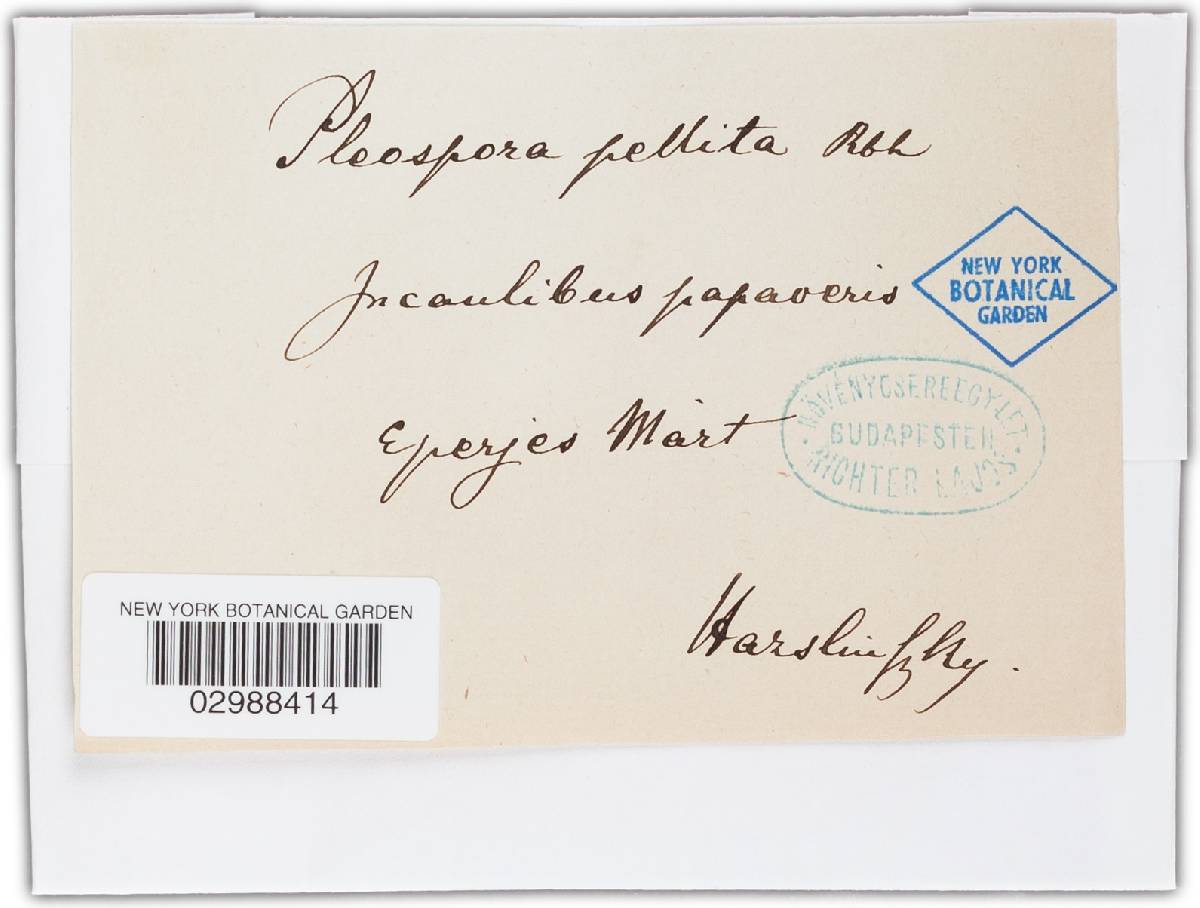 Pleospora pellita Rbh
In caulibus papaveris
NEW YORK
BOTANICAL
GARDEN
Eperjes Mart
NÖVÉNYCSEREEGYLET
BUDAPESTEN
RICHTER LAJOS
Harslinſzky.
NEW YORK BOTANICAL GARDEN
02988414